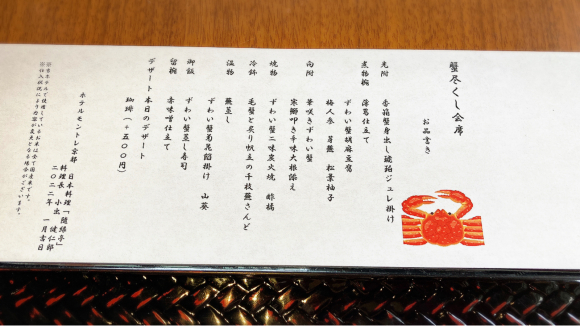 蟹尽くし会席
お品書き
先附 香箱蟹身出し 琥珀ジュレ掛け
煮物椀 薄葛仕立て
ずわい蟹胡麻豆腐
梅人参 芽蕪 松葉柚子
向附 華咲きずわい蟹
寒鰤叩き辛味大根添え
焼物 ずわい蟹二味炭火焼 酢橘
冷鉢 毛蟹と炙り帆立の千枚蕪さんど
温物 蕪蒸し
ずわい蟹菊花餡掛け 山葵
御飯 ずわい蟹蒸し寿司
留椀 赤味噌仕立て
デザート 本日のデザート
珈琲(+五〇〇円)
ホテルモントレ京都
日本料理「随縁亭」
料理長 小出 健仁郎
二〇二二年 一月吉日
※当ホテルで使用しているお米は全て国産米です。
※仕入状況により内容が変更となる場合がございます。